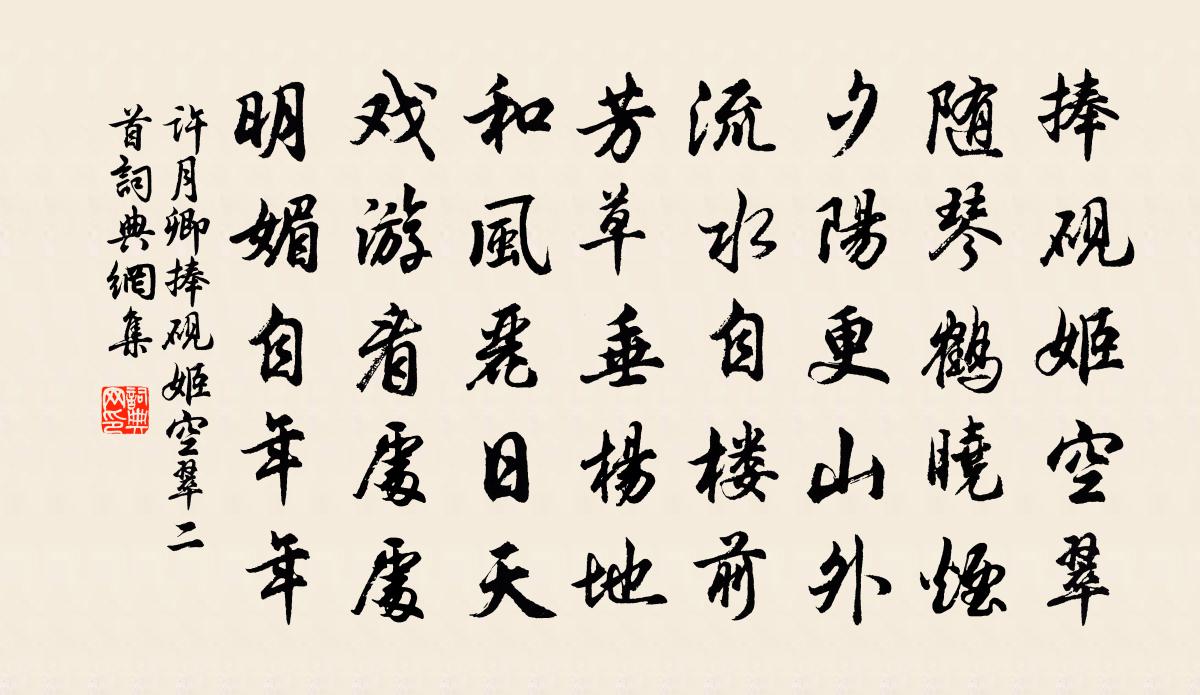 捧砚姬空翠
随琴鶴曉煙
夕陽更山外
流水自楼前
芳草垂楊地
和風麗日天
戏游看處處
明媚自年年
许月卿捧砚姬空翠二
首詞典網集
詞典网印